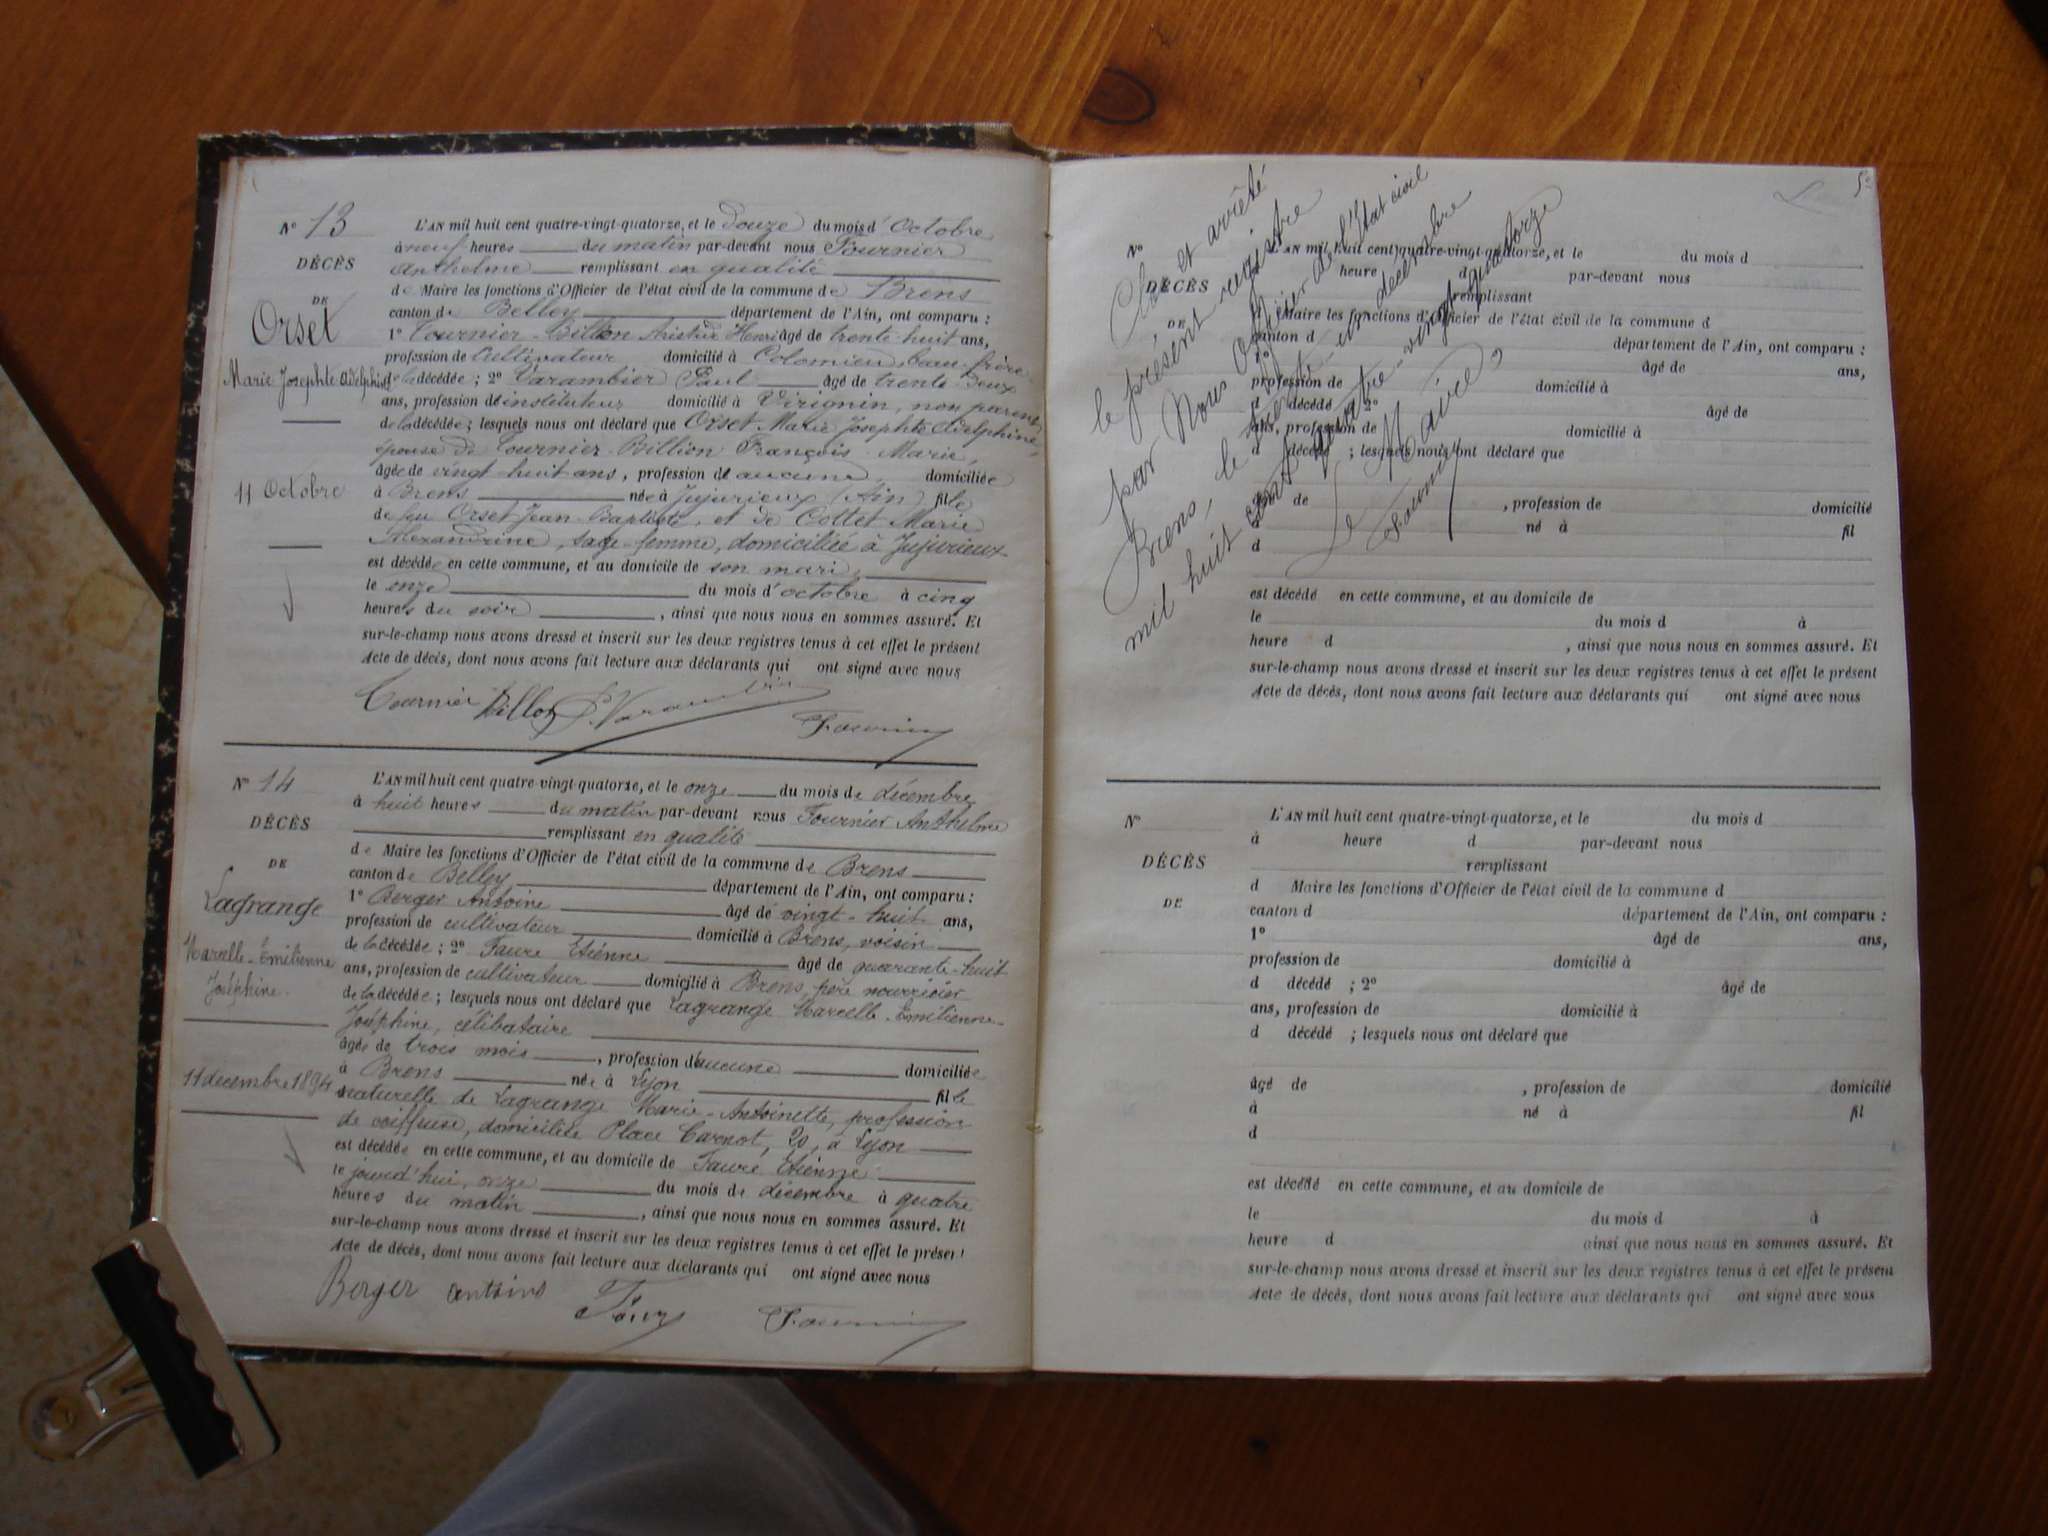 N° 13
DÉCÈS
DE
Orset
Marie Josephte Adelphine
11 Octobre
L'AN mil huit cent quatre-vingt-quatorze, et le douze du mois d'Octobre
à neuf heures du matin par-devant nous Fournier
Anthelme remplissant en qualité
de Maire les fonctions d'Officier de l'état civil de la commune de Brens
canton de Belley département de l'Ain, ont comparu :
1° Tournier-Billon Aristide Henri âgé de trente-huit ans,
profession de Cultivateur domicilié à Colomieu, beau-frère
de la décédée ; 2° Varambier Paul âgé de trente-deux
ans, profession de instituteur domicilié à Virignin, non parent
de la décédée ; lesquels nous ont déclaré que Orset Marie Josephte Adelphine,
épouse de Tournier-Billion François-Marie,
âgée de vingt-huit ans, profession de aucune, domiciliée
à Brens née à Jujurieux (Ain) fille
de feu Orset Jean-Baptiste, et de Cottet Marie
Alexandrine, sage-femme, domiciliée à Jujurieux
est décédée en cette commune, et au domicile de son mari,
le onze du mois d'octobre à cinq
heures du soir, ainsi que nous nous en sommes assuré. Et
sur-le-champ nous avons dressé et inscrit sur les deux registres tenus à cet effet le présent
Acte de décès, dont nous avons fait lecture aux déclarants qui ont signé avec nous
Tournier Billon P. Varambier
Fournier
N° 14
DÉCÈS
DE
Lagrange
Marcelle-Émilienne
Joséphine
11 décembre 1894
L'AN mil huit cent quatre-vingt-quatorze, et le onze du mois de décembre
à huit heures du matin par-devant nous Fournier Anthelme
remplissant en qualité
de Maire les fonctions d'Officier de l'état civil de la commune de Brens
canton de Belley département de l'Ain, ont comparu :
1° Berger Antoine âgé de vingt-huit ans,
profession de cultivateur domicilié à Brens, voisin
de la décédée ; 2° Faure Etienne âgé de quarante-huit
ans, profession de cultivateur domicilié à Brens, père nourricier
de la décédée ; lesquels nous ont déclaré que Lagrange Marcelle-Émilienne-
Joséphine, célibataire
âgée de trois mois, profession d'aucune domiciliée
à Brens née à Lyon fille
naturelle de Lagrange Marie-Antoinette, profession
de coiffeuse, domiciliée Place Carnot, 20, à Lyon
est décédée en cette commune, et au domicile de Faure Etienne
le jourd'hui, onze du mois de décembre à quatre
heures du matin, ainsi que nous nous en sommes assuré. Et
sur-le-champ nous avons dressé et inscrit sur les deux registres tenus à cet effet le présent
Acte de décès, dont nous avons fait lecture aux déclarants qui ont signé avec nous
Berger antoine Faure Fournier
Clos et arrêté
le présent registre
par Nous Officier de l'État civil
Brens, le trente-un décembre
mil huit cent quatre-vingt-quatorze
Le Maire,
Fournier
N°
DÉCÈS
DE
L'AN mil huit cent quatre-vingt-quatorze, et le du mois d
à heure d par-devant nous
remplissant
d Maire les fonctions d'Officier de l'état civil de la commune d
canton d département de l'Ain, ont comparu :
1° âgé de ans,
profession de domicilié à
d décédé ; 2° âgé de
ans, profession de domicilié à
d décédé ; lesquels nous ont déclaré que
âgé de , profession de domicilié
à né à fil
d
est décédé en cette commune, et au domicile de
le du mois d à
heure d , ainsi que nous nous en sommes assuré. Et
sur-le-champ nous avons dressé et inscrit sur les deux registres tenus à cet effet le présent
Acte de décès, dont nous avons fait lecture aux déclarants qui ont signé avec nous
N°
DÉCÈS
DE
L'AN mil huit cent quatre-vingt-quatorze, et le du mois d
à heure d par-devant nous
remplissant
d Maire les fonctions d'Officier de l'état civil de la commune d
canton d département de l'Ain, ont comparu :
1° âgé de ans,
profession de domicilié à
d décédé ; 2° âgé de
ans, profession de domicilié à
d décédé ; lesquels nous ont déclaré que
âgé de , profession de domicilié
à né à fil
d
est décédé en cette commune, et au domicile de
le du mois d à
heure d ainsi que nous nous en sommes assuré. Et
sur-le-champ nous avons dressé et inscrit sur les deux registres tenus à cet effet le présent
Acte de décès, dont nous avons fait lecture aux déclarants qui ont signé avec nous